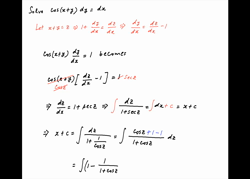 Solve cos(x+y) dy = dx
Let x+y = z ⇒ 1 + dy/dx = dz/dx ⇒ dy/dx = dz/dx - 1
cos(x+y) dy/dx = 1 becomes
cos(x+y) [dz/dx - 1] = 1 secz
secz
⇒ dz/dx = 1 + secz ⇒ ∫ dz/(1+secz) = ∫ dx + c = x+c
⇒ x+c = ∫ dz/(1 + 1/cosz) = ∫ (cosz + 1 - 1)/(1 + cosz) dz
= ∫ (1 - 1/(1+cosz)